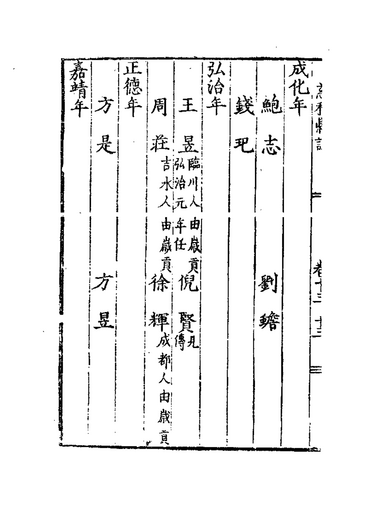 成化年
鮑志 劉蟾
錢玘
弘治年
王昱 臨川人由歲貢弘治元年任 倪賢 見傳
周荘 吉水人由歲貢 徐輝 成都人由歲貢
正德年
方是 方昱
嘉靖年
卷十三 十三